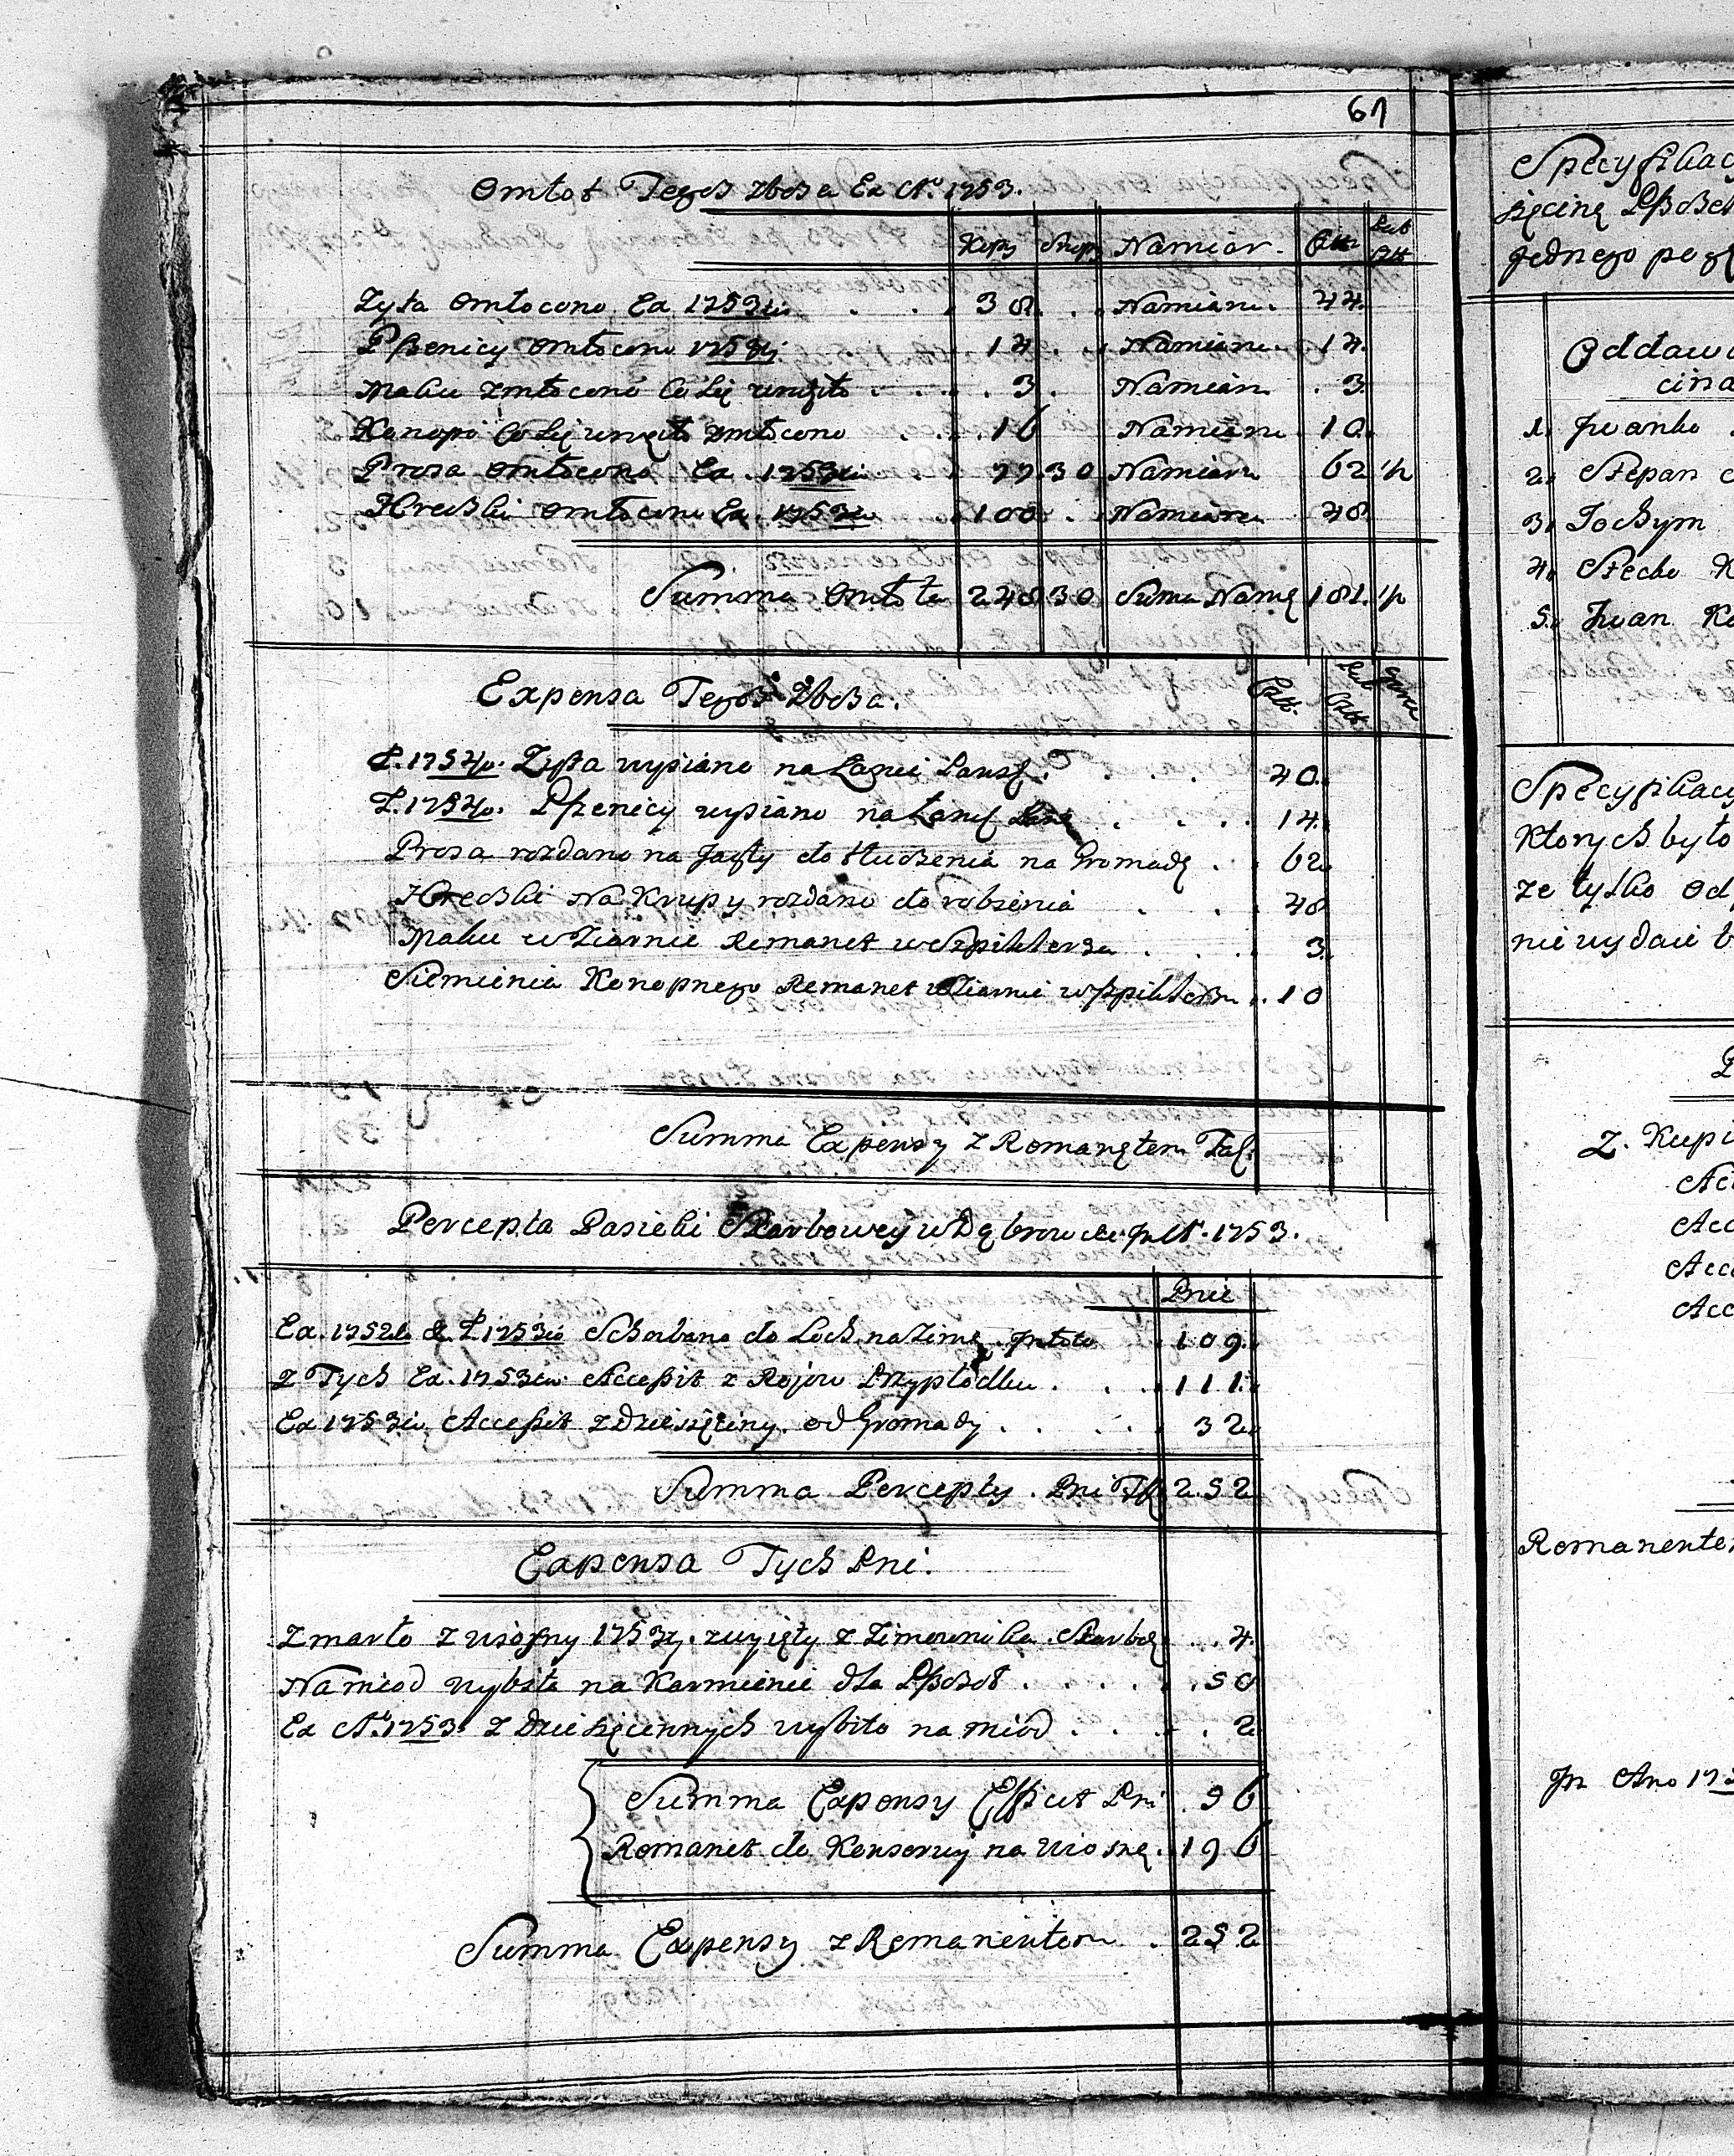 67
Omłot Tegoż zboża Ex Ao 1753.
Kopy Snopy Namiar Cztt Puł Cztt
Żyta Omłocono Ex 1753tii 38 Namiaru 44
Pszenicy omłocono 1753tij 14 Namiaru 14
Maku zmłocono co się 3 Namiaru 3
Konopi co się zmłocono 16 Namiaru 10
Prosa omłocono Ex 1753tii 77 30 Namiaru 62 1/2
Hreczki omłocono Ex 1753tii 100 Namiaru 48
Summa omłotu 248 30 Suma Namię 181 1/2
Expensa Tegoż Zboża.
Cztt. Puł Cztt Garce
P. 1754to. Żyta wysiano na Łanie 40
P. 1754to. Pszenicy wysiano na 14
Prosa rozdano na Jagły do tłuczenia na Gromadę 62
Hreczki na Krupy rozdano do robienia 48
Maku w Ziarnie Remanet w Szpikhlerzu 3
Siemienia Konopnego Remanet w Ziarnie w Szpikhlerzu 10
Summa Expensy z Remanętem Fac:
Percepta Pasieki Skarbowey w Dąbrowce In Ao. 1753.
Pnie
Ex. 1752do & P 1753io Schowano do Loch na Zimę 109
Z Tych Ex. 1753tio Accessit z Rojow Przypłodku 111
Ex 1753tio Accessit z dziesięciny od Gromady 32
Summa Percepty Pni 252
Expensa Tych Pni.
Zmarło z wiosny 1753 z Zimownika Skarbo 4
Na miod wybito na Karmienie dla Pszczoł 50
Ex Ao 1753 z Dziesięcinnych wybito na miód 2
Summa Expensy Pni 56
Remanet do Konserwy na wiosnę 196
Summa Expensy z Remanentem 252
Specyfikacy
Pszczeł
jednego po
Oddaw
cina
1. Iwanko
2. Stepan
3. Jochym
4. Stecko K
5. Iwan Ko
Specyfikacy
Ktorych było
że tylko Od
nie wydaie
P
Z. Kupi
Acc
Acc
Acc
Acc
Remanente
In Ano 175